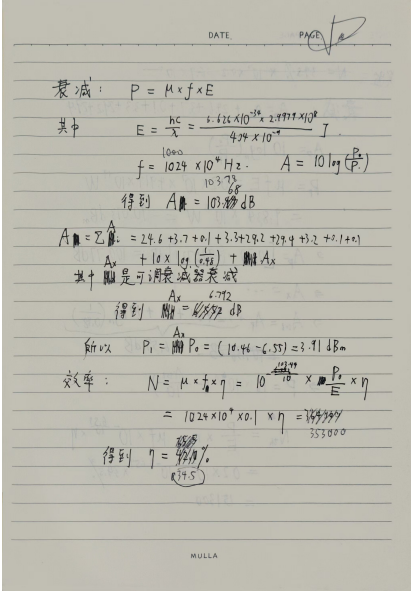 DATE PAGE
衰减: P = μ×f×E
其中 E = hc/λ = 6.626×10^-34 × 2.9979×10^8 / 404×10^-9 J.
1000
f = 1024 ×10^4 Hz. A = 10 log(P0/P1)
103.79
得到 A = 103. dB
68
A = Σ Ai = 24.6+3.7+0.1+3.3+29.2+29.9+3.2+0.1+0.1
+10× log(1/0.98) + Ax
其中 Ax 是可调衰减器衰减
得到 Ax = 6.792 dB
所以 P1 = Ax P0 = (10.46-6.55) = 3.91 dBm
效率: N = μ×f×η = 10^(103.49/10) × P0/E × η
= 1024×10^4 ×0.1 × η =
353000
得到 η = %
34.5
MULLA